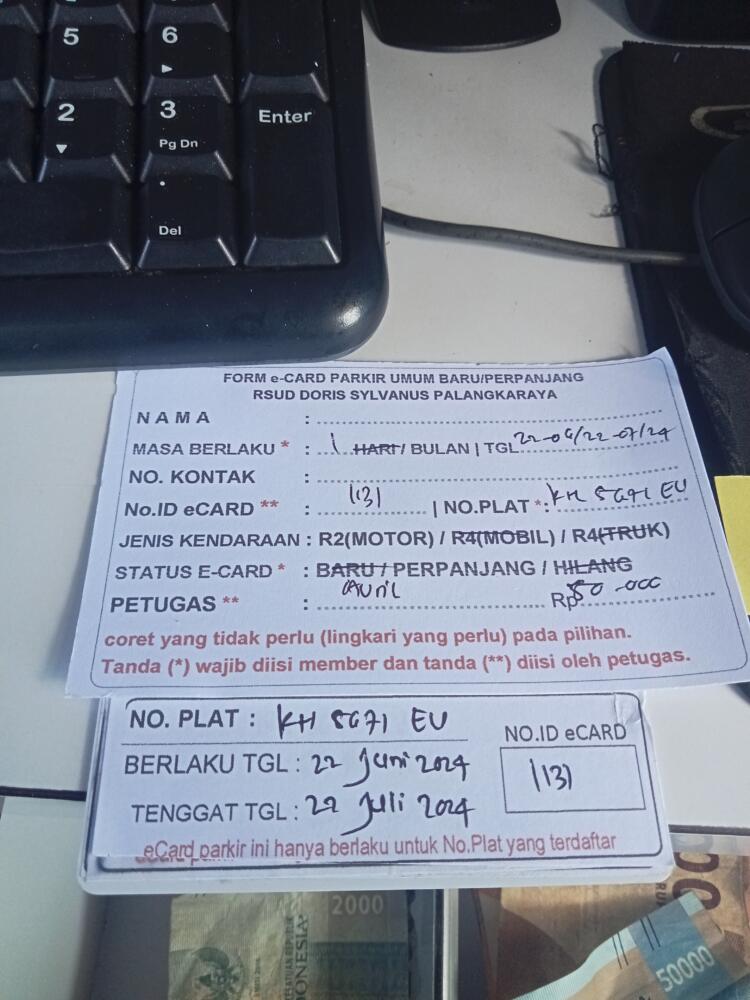 5
6
2
3
Pg Dn
Enter
.
Del
FORM e-CARD PARKIR UMUM BARU/PERPANJANG
RSUD DORIS SYLVANUS PALANGKARAYA
NAMA :
MASA BERLAKU * : 1 HARI / BULAN | TGL 22-06/22-07/24
NO. KONTAK :
No.ID eCARD ** : 1131 | NO.PLAT *: KH 5671 EU
JENIS KENDARAAN : R2(MOTOR) / R4(MOBIL) / R4(TRUK)
STATUS E-CARD * : BARU / PERPANJANG / HILANG
PETUGAS ** : Avril Rp 50.000
coret yang tidak perlu (lingkari yang perlu) pada pilihan.
Tanda (*) wajib diisi member dan tanda (**) diisi oleh petugas.
NO. PLAT : KH 5671 EU
NO.ID eCARD
BERLAKU TGL : 22 Juni 2024
1131
TENGGAT TGL : 22 Juli 2024
eCard parkir ini hanya berlaku untuk No.Plat yang terdaftar
2000
50000